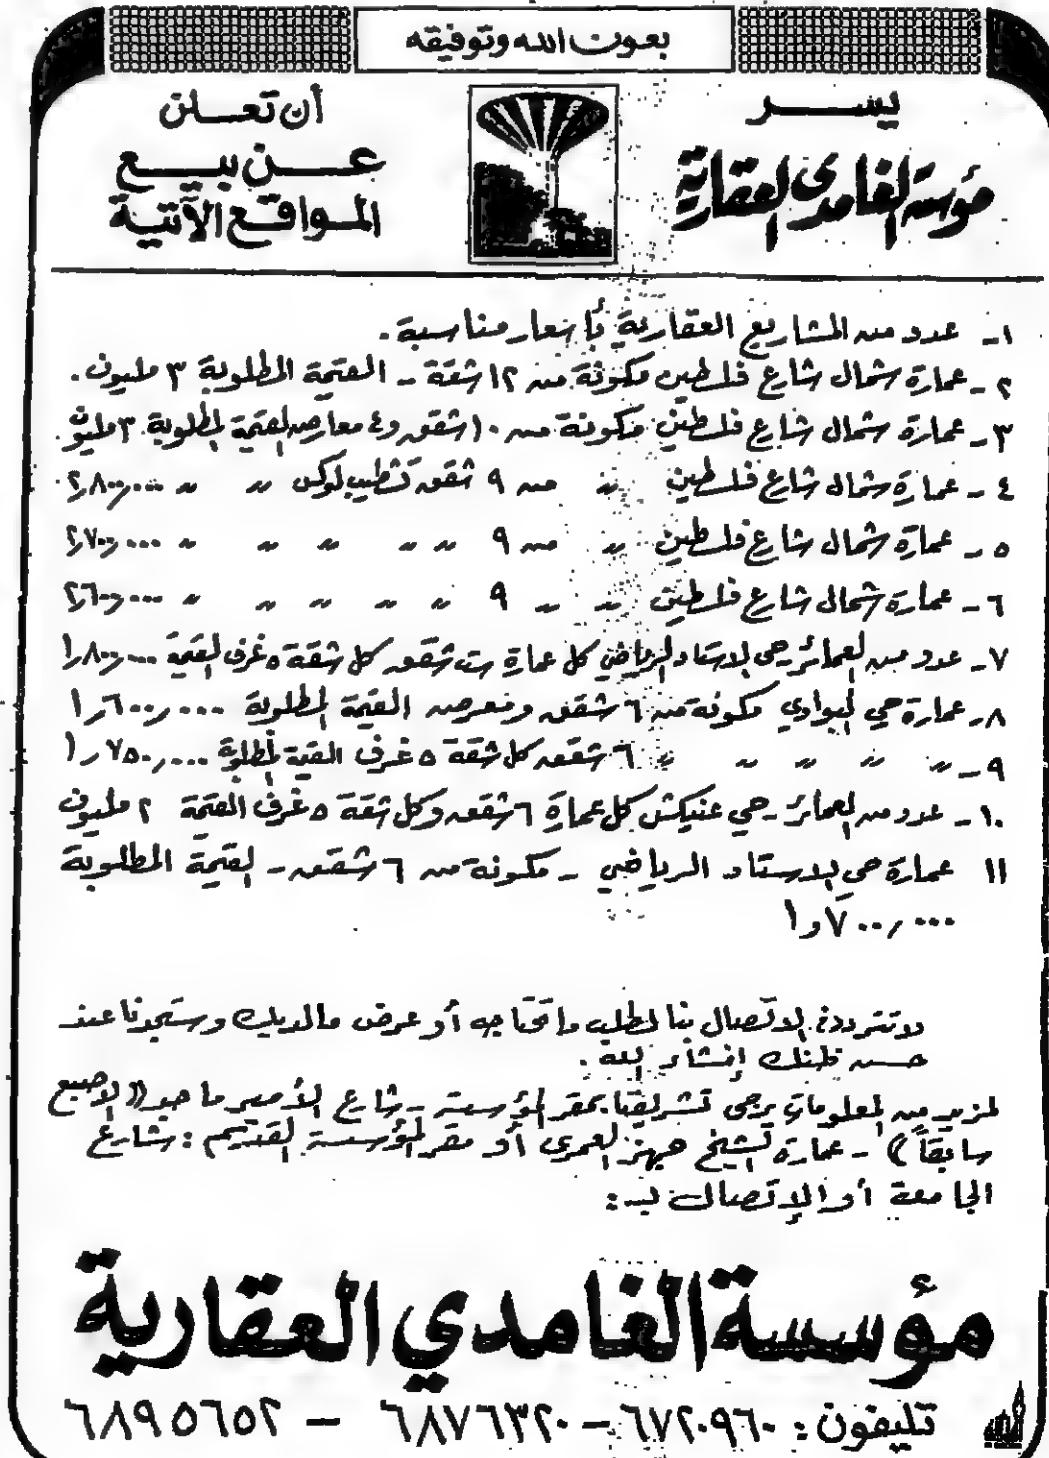 بعون الله وتوفيقه
يسر
مؤسسة الغامدي العقارية
أن تعلن
عن بيع
المواقع الآتية
١- عدد من المشاريع العقارية بأسعار مناسبة.
٢- عمارة شمال شارع فلسطين مكونة من ١٢ شقة - القيمة المطلوبة ٣ مليون.
٣- عمارة شمال شارع فلسطين مكونة من ١٠ شقق و٤ معارض القيمة المطلوبة ٣ مليون
٤- عمارة شمال شارع فلسطين " من ٩ شقق تشطيب لوكس " " ٢٫٨٠٠٫٠٠٠
٥- عمارة شمال شارع فلسطين " من ٩ " " " " " ٢٫٧٠٠٫٠٠٠
٦- عمارة شمال شارع فلسطين " " ٩ " " " " " ٢٫٦٠٠٫٠٠٠
٧- عدد من العمائر - حي الاستاد الرياضي كل عمارة ست شقق كل شقة ٥ غرف القيمة ١٫٨٠٠٫٠٠٠
٨- عمارة حي البوادي مكونة من ٦ شقق ومعرض القيمة المطلوبة ١٫٦٠٠٫٠٠٠
٩- " " " " " ٦ شقق كل شقة ٥ غرف القيمة المطلوبة ١٫٧٥٠٫٠٠٠
١٠- عدد من العمائر - حي عنيكش كل عمارة ٦ شقق وكل شقة ٥ غرف القيمة ٢ مليون
١١ عمارة حي الاستاد الرياضي - مكونة من ٦ شقق - القيمة المطلوبة
١٫٧٠٠٫٠٠٠
لا تتردد في الاتصال بنا لطلب ما تحتاجه أو عرض ما لديك وستجدنا عند
حسن ظنك إنشاء الله.
لمزيد من المعلومات يرجى تشريفنا بمقر المؤسسة - شارع الأمير ماجد «الاصبع
سابقاً» - عمارة الشيخ العمري أو مقر المؤسسة القديم: شارع
الجامعة أو الإتصال بـ:
مؤسسة الغامدي العقارية
تليفون: ٦٧٢٠٩٦٠ - ٦٨٧٦٣٢٠ - ٦٨٩٥٦٥٢